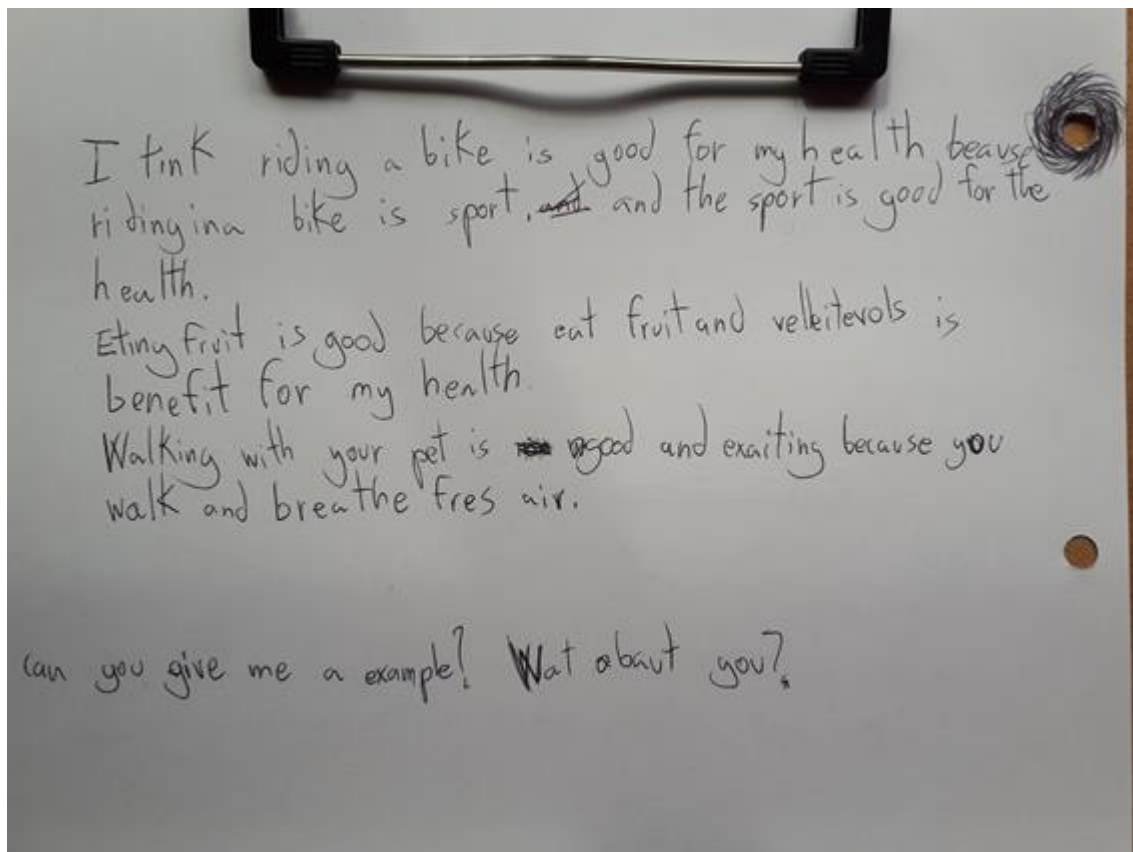 I tink riding a bike is good for my health, beause
riding ina bike is sport, and and the sport is good for the
health.
Etiny fruit is good because eat fruit and velleitevols is
benefit for my health.
Walking with your pet is good and exaiting because you
walk and breathe fres air.
can you give me a example? Wat abaut you?